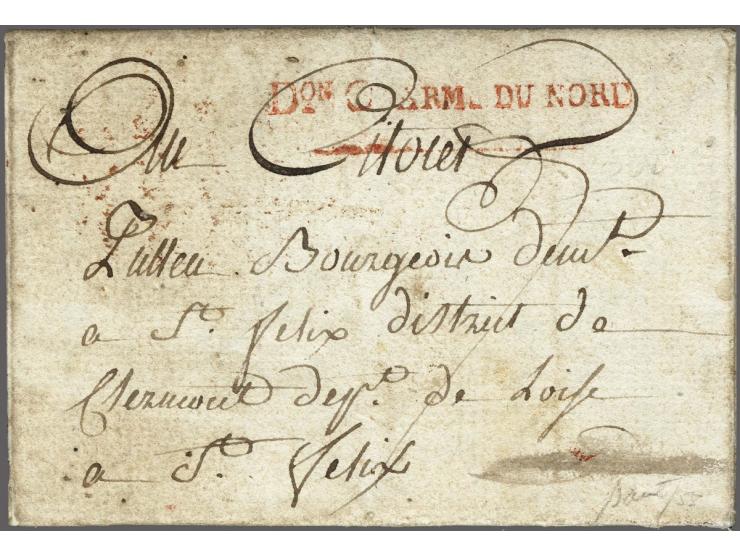 DON C ARM. DU NORD
Au Citoien
Bourgeois demt.
a St. felix district de
Clermont dept. de Loise
a St. felix